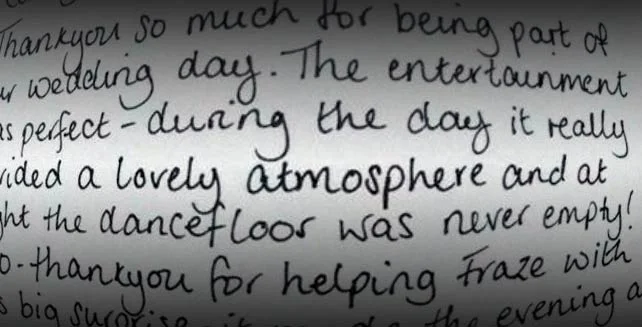 Thankyou so much for being part of
ur wedding day. The entertainment
as perfect - during the day it really
vided a lovely atmosphere and at
ght the dancefloor was never empty!
o - thankyou for helping Fraze with
s big surprise it the evening a